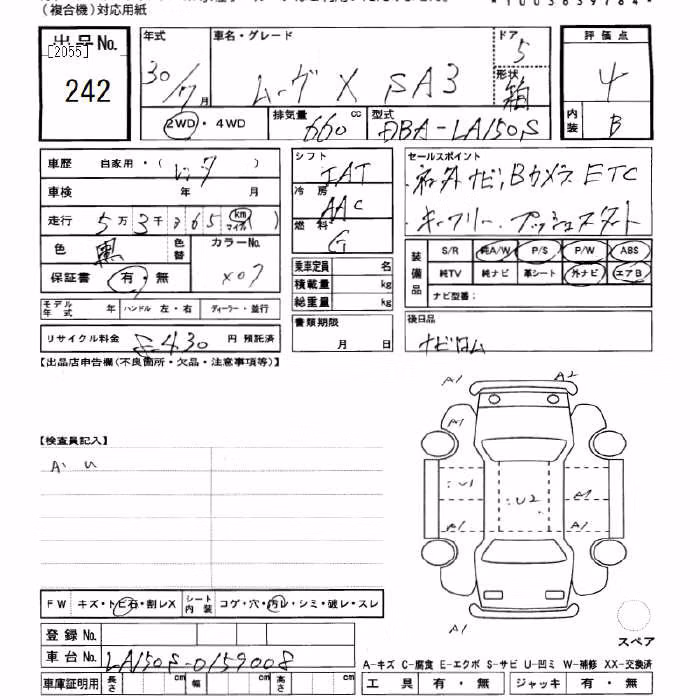 （複合機）対応用紙
出品No.
[2055]
242
年式
30/7月
車名・グレード
ムーヴ X SA3
ドア
5
形状
箱
評価点
4
内装
B
2WD・4WD
排気量 660 cc
型式 DBA-LA150S
車歴 自家用・( レンタ )
車検 年 月
走行 5万3千365 km マイル( )
色 黒 色替 カラーNo. X07
保証書 有・無
モデル年式 年 ハンドル 左・右 ディーラー・並行
リサイクル料金 6430 円 預託済
シフト IAT
冷房 AAC
燃料 G
乗車定員 名
積載量 kg
総重量 kg
書類期限
月 日
セールスポイント
・社外ナビ,Bカメラ ETC
・キーフリー プッシュスタート
装備品
S/R 純A/W P/S P/W ABS
純TV 純ナビ 革シート 外ナビ エアB
ナビ型番：
後日品
ナビロム
【出品店申告欄(不良箇所・欠品・注意事項等)】
【検査員記入】
A・U
A1 A2
A1
U1 U2 A1
A1 A1
A1
スペア
FW キズ・トビ石・割レX シート内装 コゲ・穴・汚レ・シミ・破レ・スレ
登録No.
車台No. LA150S-0159008
車庫証明用 長さ cm 幅 cm 高さ cm
A-キズ C-腐食 E-エクボ S-サビ U-凹ミ W-補修 XX-交換済
工具 有・無 ジャッキ 有・無